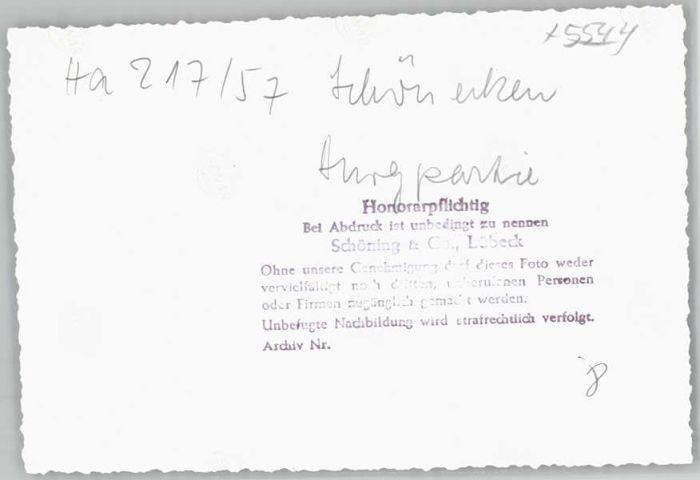 +5544
Ha 217/57 Schönecken
Burgpartie
Honorarpflichtig
Bei Abdruck ist unbedingt zu nennen
Schöning & Co., Lübeck
Ohne unsere Genehmigung darf dieses Foto weder
vervielfältigt noch dritten, unberufenen Personen
oder Firmen zugänglich gemacht werden.
Unbefugte Nachbildung wird strafrechtlich verfolgt.
Archiv Nr.
8